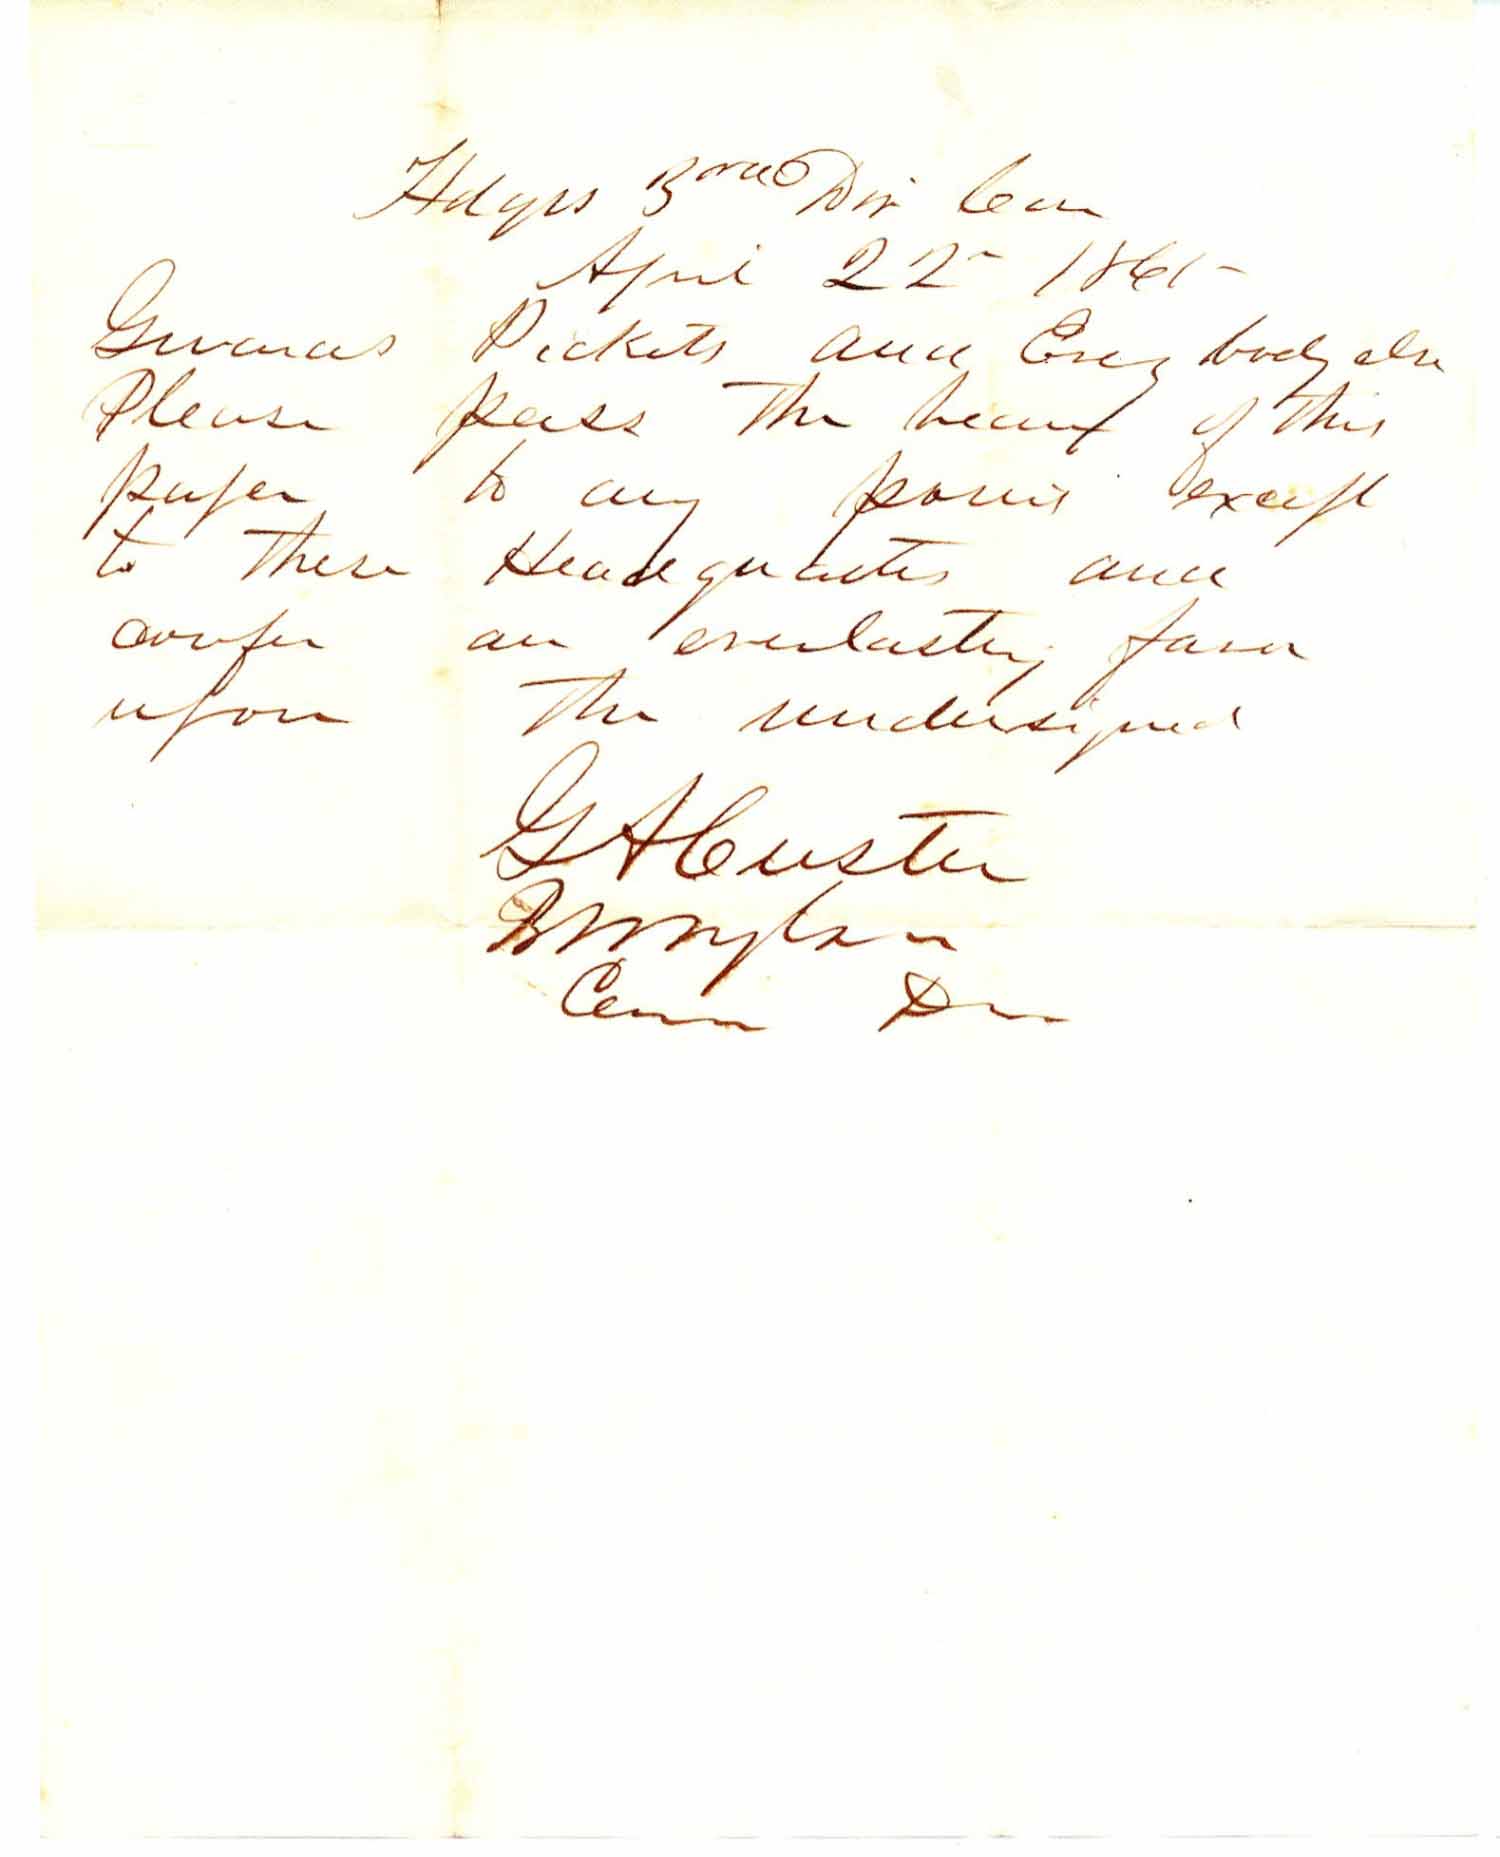 Hdqrs 3rd Div Cav
April 22 1865
Guards Pickets and Every body else
Please pass the bearer of this
paper to any point except
to these Headquarters and
confer an everlasting favor
upon the undersigned
G A Custer
Comdg Div